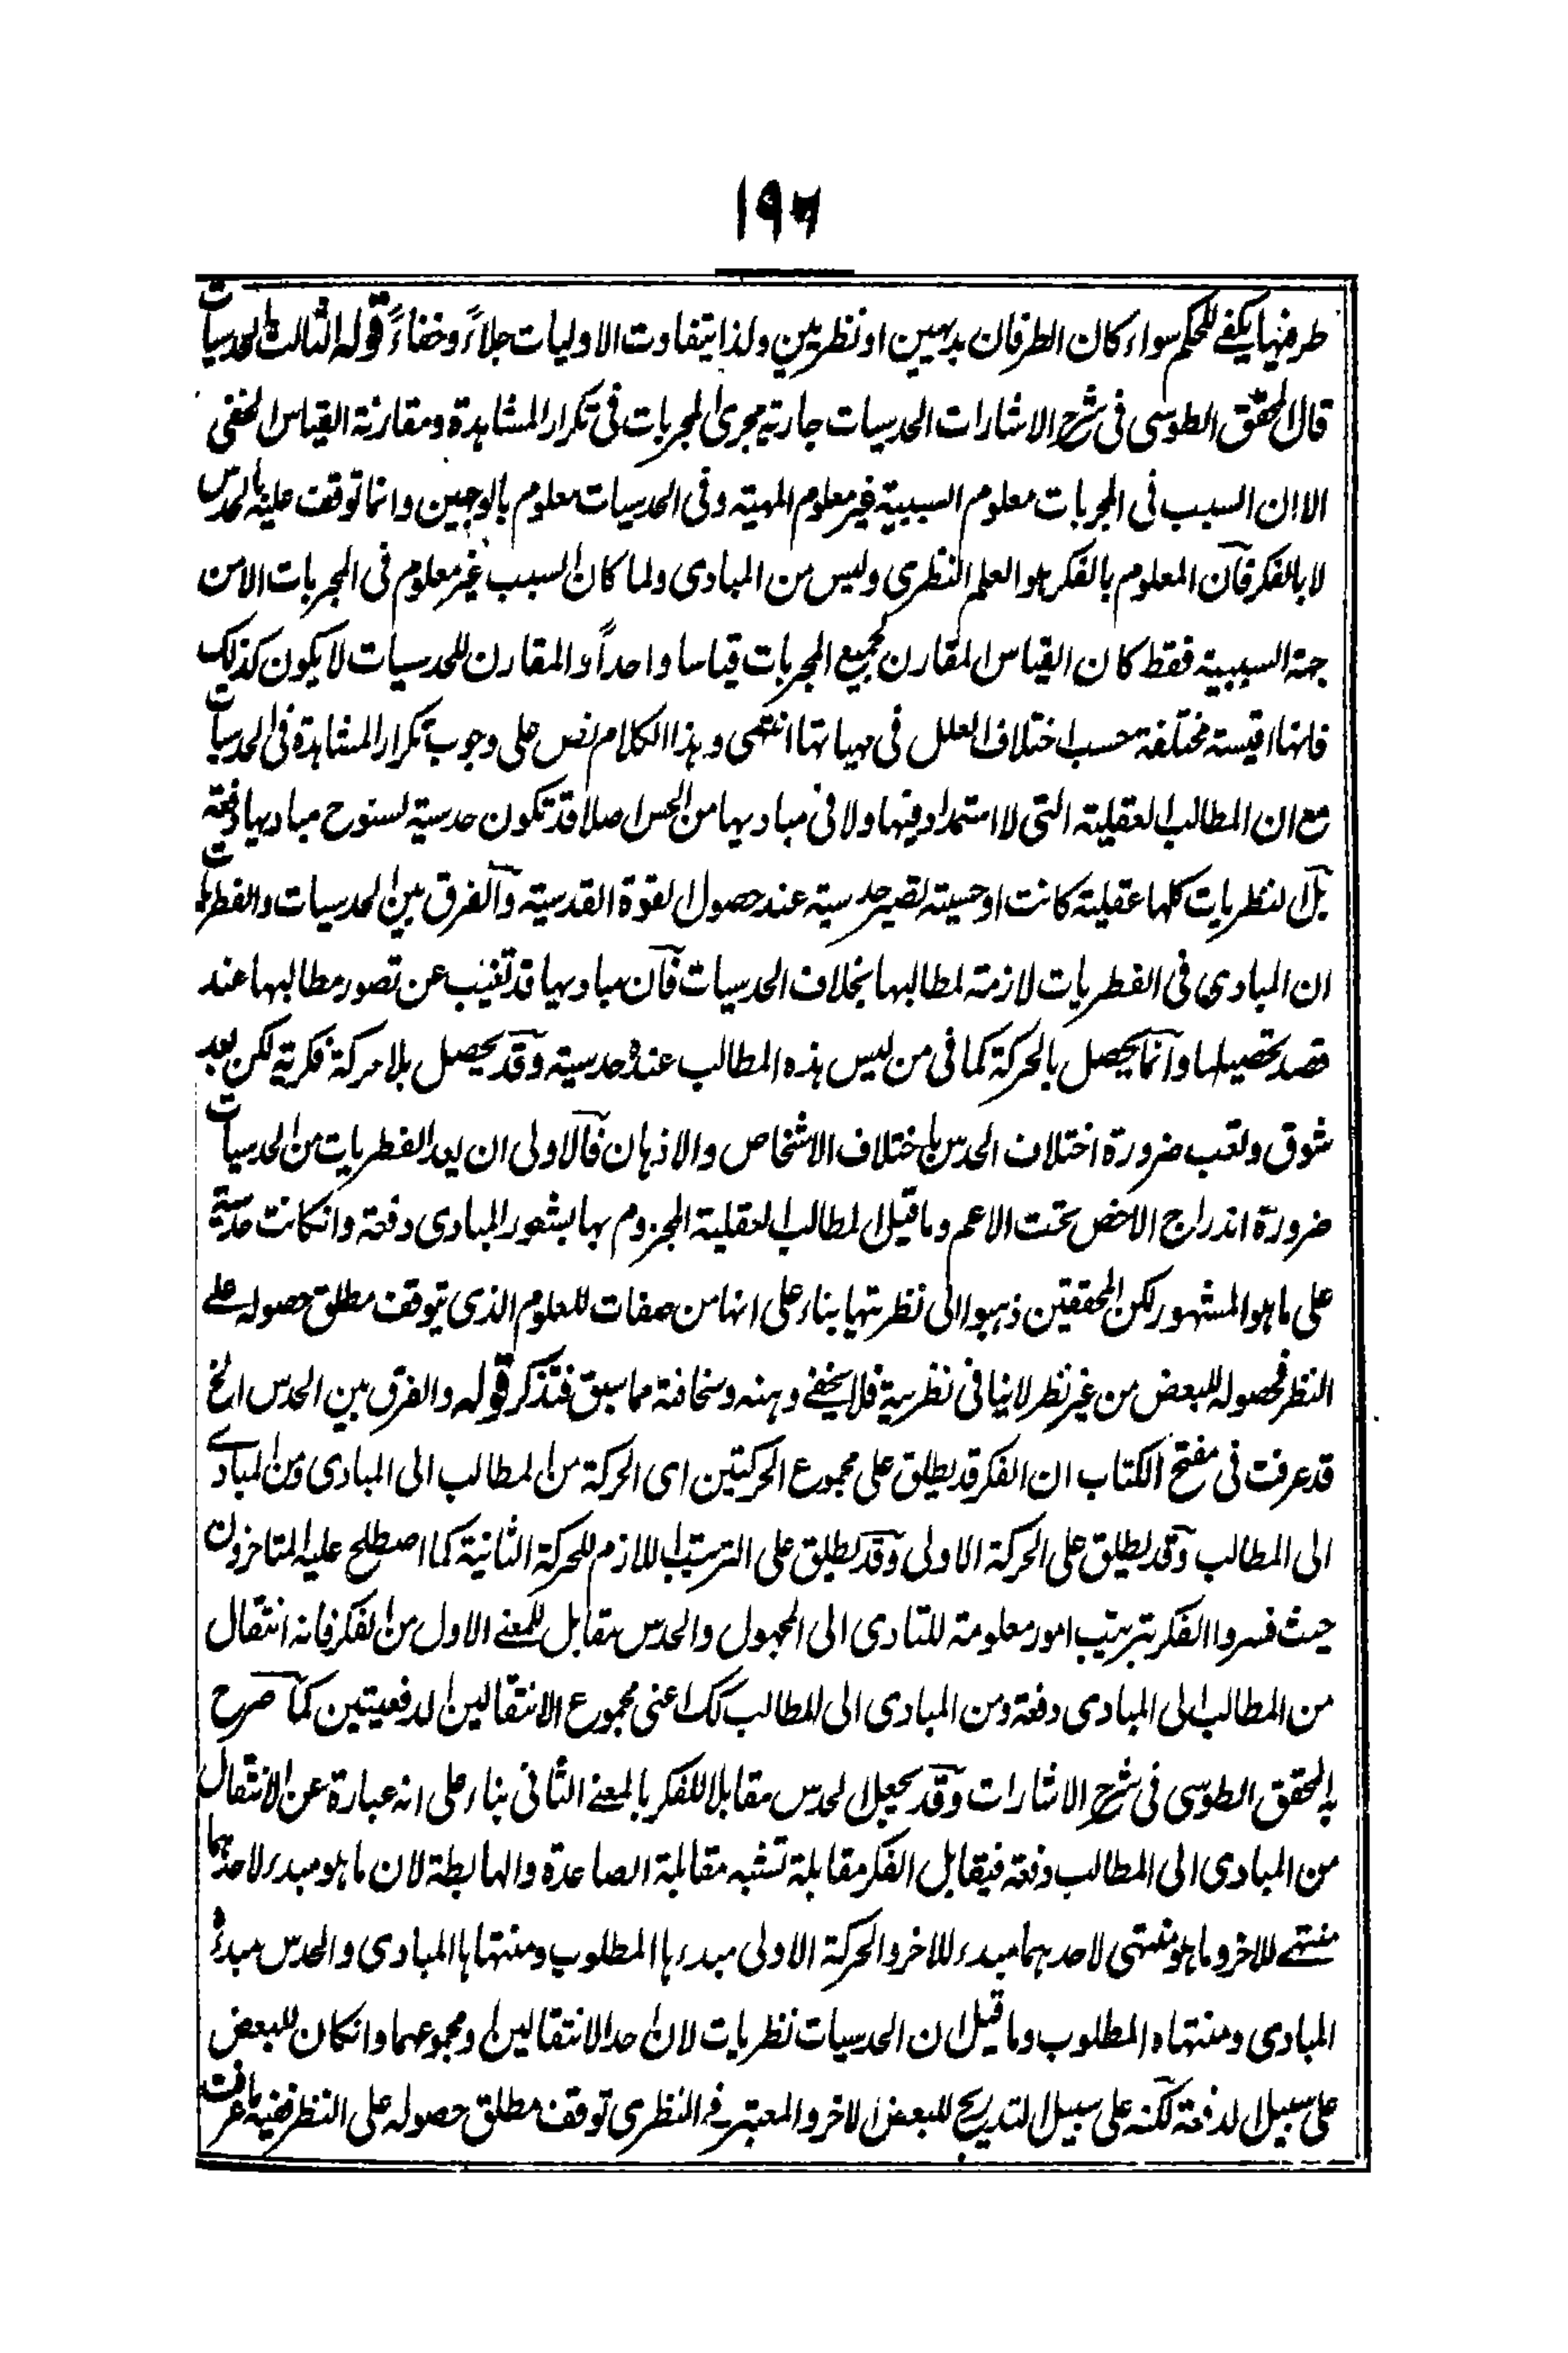 ١٩٦
طرفيها يكفے للحكم سواء كان الطرفان بديهيين او نظريين ولذا يتفاوت الاوليات جلاءً وخفاءً قوله الثالث الحدسيات
قال المحقق الطوسى فى شرح الاشارات الحدسيات جارية مجرى المجربات فى تكرار المشاهدة ومقارنة القياس الخفى
الا ان السبب فى المجربات معلوم السببية غير معلوم المهية وفى الحدسيات معلوم بالوجهين وانما توقف عليه بالحدس
لا بالفكر فان المعلوم بالفكر هو العلم النظرى وليس من المبادى ولما كان السبب غير معلوم فى المجربات الا من
جهة السببية فقط كان القياس المقارن لجميع المجربات قياسا واحداً والمقارن للحدسيات لا يكون كذلك
فانها اقيسة مختلفة حسب اختلاف العلل فى مهياتها انتهى وهذا الكلام نص على وجوب تكرار المشاهدة فى الحدسيات
مع ان المطالب العقلية التى لا استمداد فيها ولا فى مباديها من الحس اصلا قد تكون حدسية لسنوح مباديها دفعة
بل النظريات كلها عقلية كانت او حسية تصير حدسية عند حصول القوة القدسية والفرق بين الحدسيات والفطريات
ان المبادى فى الفطريات لازمة لمطالبها بخلاف الحدسيات فان مباديها قد تغيب عن تصور مطالبها عند
قصد تحصيلها وانما يحصل بالحركة كما فى من ليس هذه المطالب عنده حدسية وقد يحصل بلا حركة فكرية لكن بعد
شوق وتعب ضرورة اختلاف الحدس باختلاف الاشخاص والاذهان فالاولى ان يعد الفطريات من الحدسيات
ضرورة اندراج الاخص تحت الاعم وما قيل المطالب العقلية المجزوم بها بشعور المبادى دفعة وانكانت حدسية
على ما هو المشهور لكن المحققين ذهبوا الى نظريتها بناء على انها من صفات للمعلوم الذى يتوقف مطلق حصوله علے
النظر فحصوله للبعض من غير نظر لا ينافى نظرية فلا يخفے وهنه وسخافته مما سبق فتذكر قوله والفرق بين الحدس الخ
قد عرفت فى مفتح الكتاب ان الفكر قد يطلق على مجموع الحركتين اى الحركة من المطالب الى المبادى ومن المبادے
الى المطالب وقد يطلق على الحركة الاولى وقد يطلق على الترتيب اللازم للحركة الثانية كما اصطلح عليه المتاخرون
حيث فسروا الفكر بترتيب امور معلومة للتادى الى المجهول والحدس مقابل للمعنے الاول من الفكر فانه انتقال
من المطالب الى المبادى دفعة ومن المبادى الى المطالب كك اعنى مجموع الانتقالين الدفعيتين كما صرح
به المحقق الطوسى فى شرح الاشارات وقد يجعل الحدس مقابلا للفكر بالمعنے الثانى بناء على انه عبارة عن الانتقال
من المبادى الى المطالب دفعة فيقابل الفكر مقابلة تشبه مقابلة الصاعدة والهابطة لان ما هو مبدء لاحدهما
منتهے للاخر وما هو منتهى لاحدهما مبدء للاخر والحركة الاولى مبدءها المطلوب ومنتهاها المبادى والحدس مبدءه
المبادى ومنتهاه المطلوب وما قيل ان الحدسيات نظريات لان احد الانتقالين او مجموعهما وانكان للبعض
على سبيل الدفعة لكنه على سبيل التدريج للبعض الاخر والمعتبر فے النظرى توقف مطلق حصوله على النظر ففيه ما عرفت